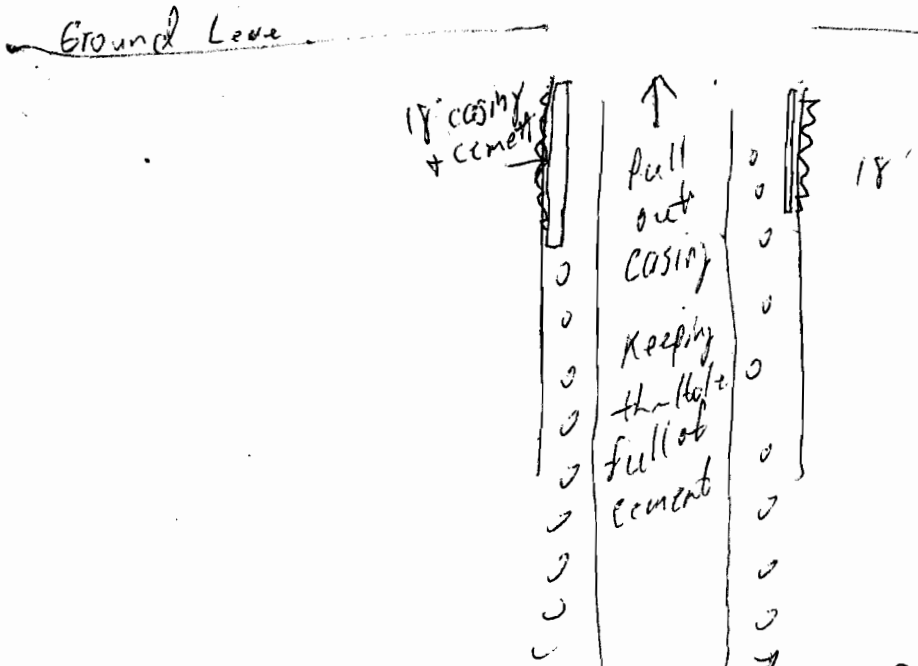 Ground Leve
18' casing
+ cement
18'
Pull
out
casing
Keeping
the Hole
full of
cement